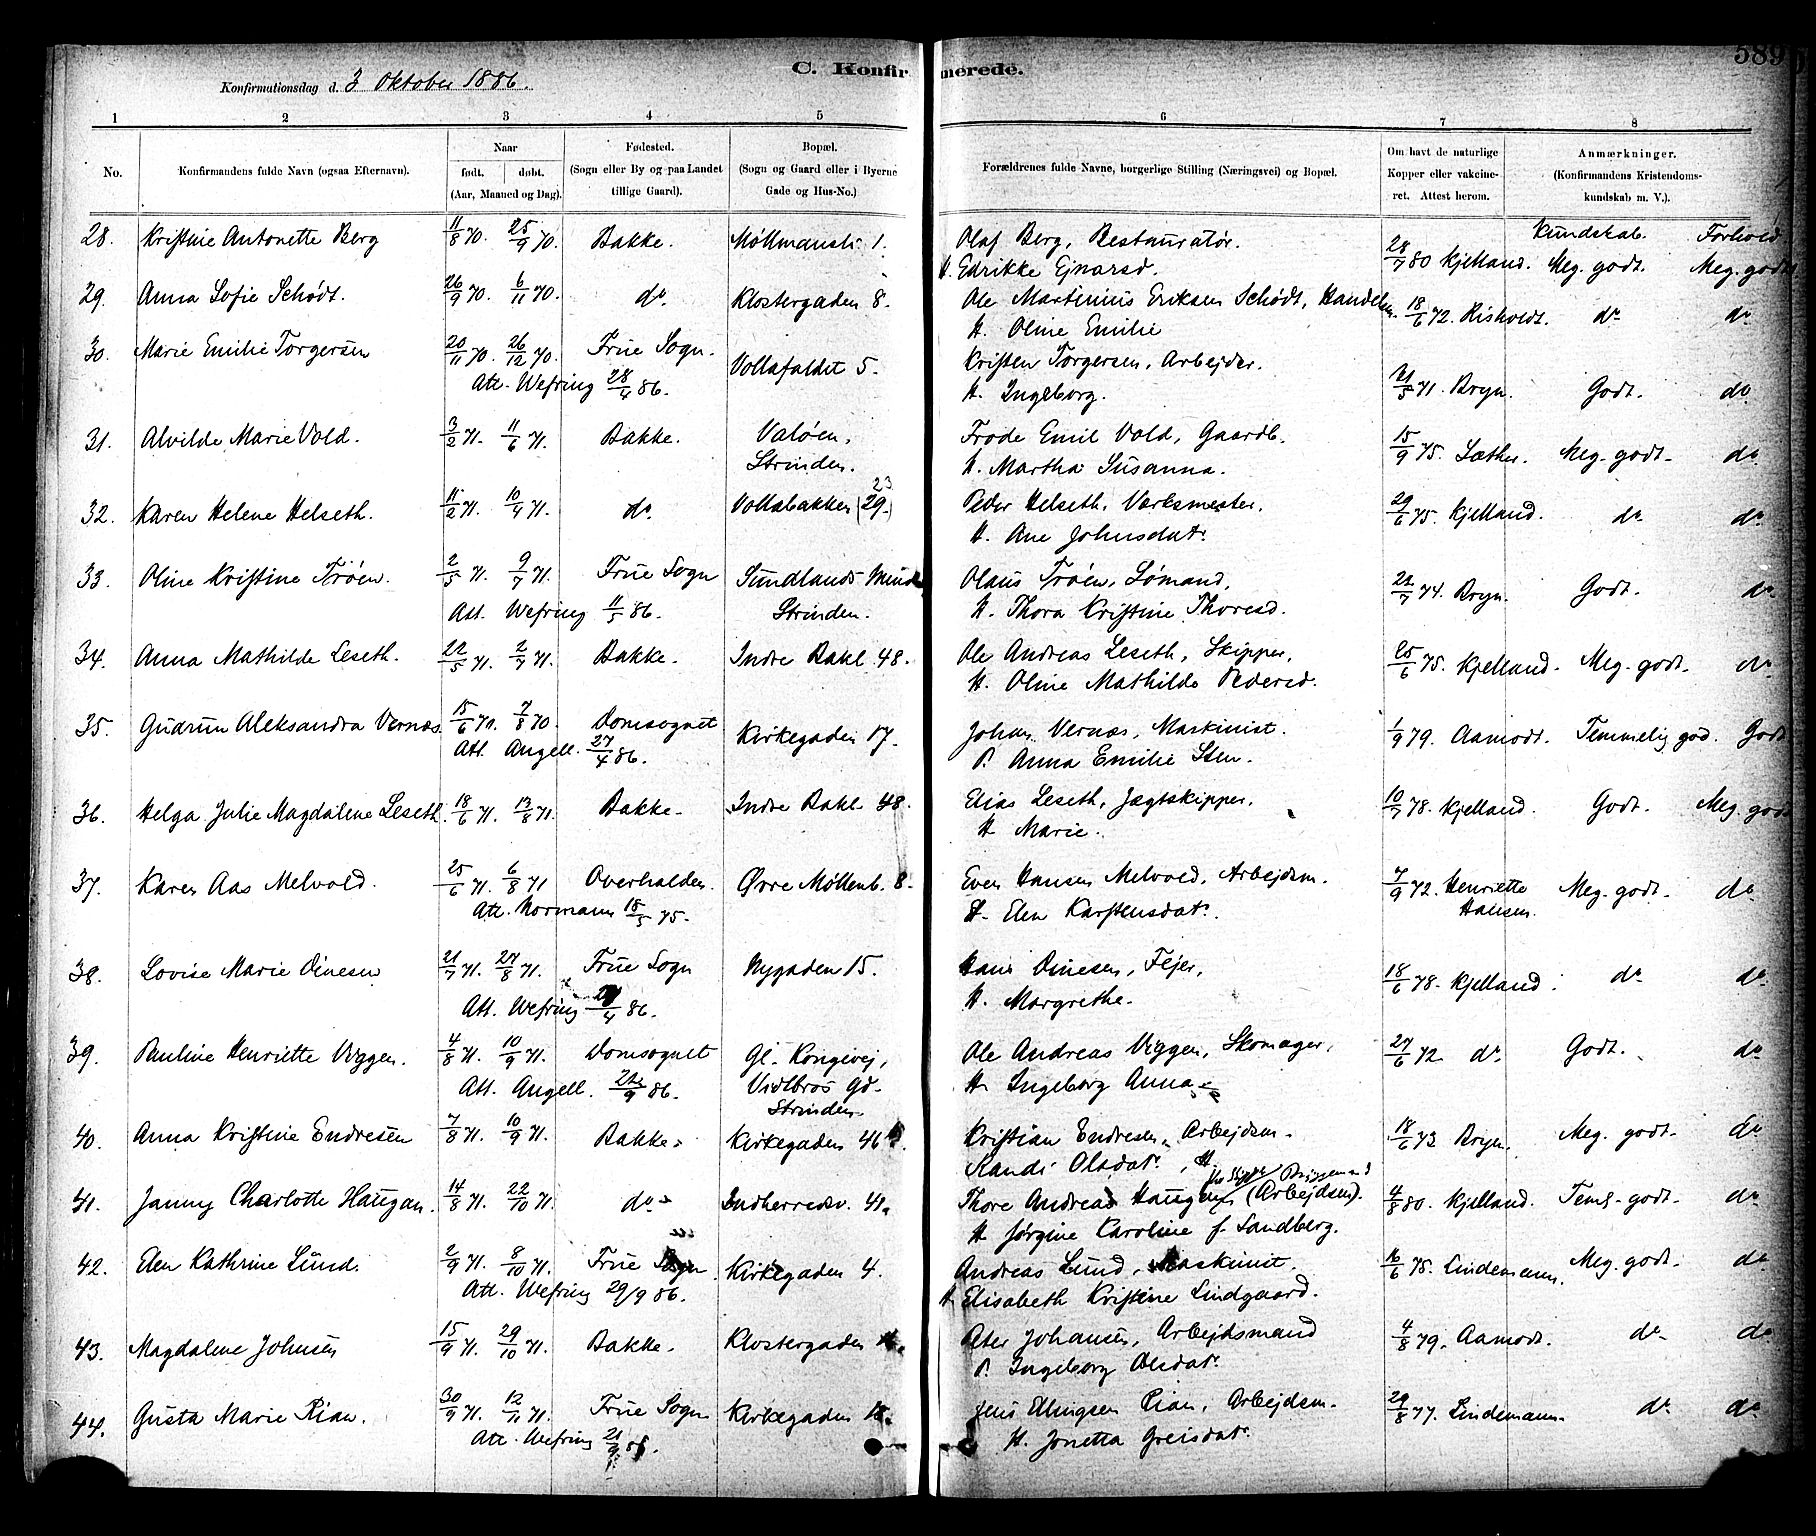 589
C. Konfirmerede.
Konfirmationsdag d. 3 Oktober 1886.
1 2 3 4 5 6 7 8
No.
Konfirmandens fulde Navn (ogsaa Efternavn).
Naar
født. døbt.
(Aar, Maaned og Dag).
Fødested.
(Sogn eller By og paa Landet
tillige Gaard).
Bopæl.
(Sogn og Gaard eller i Byerne
Gade og Hus-No.)
Forældrenes fulde Navne, borgerlige Stilling (Næringsvei) og Bopæl.
Om havt de naturlige
Kopper eller vakcine-
ret. Attest herom.
Anmærkninger.
(Konfirmandens Kristendoms-
kundskab m. V.).
Kundskab. Forhold
28. Kristine Antonette Berg 11/8 70. 25/9 70. Bakke. Møllmansli 1. Olaf Berg, Restauratør. 28/7 80 Kjelland. Meg. godt. Meg. godt
H. Edrikke Ejnarsd.
29. Anna Sofie Schødt. 26/9 70. 6/11 70. do. Klostergaden 8. Ole Martinius Eriksen Schødt, Handelsm. 18/6 72. Risholdt. do do
H. Oline Emilie
30. Marie Emilie Torgersen 20/11 70. 26/12 70. Frue Sogn. Vollafaldet 5. Kristen Torgersen, Arbejder. 21/5 71. Bryn. Godt. do
Att. Wefring 28/4 86. H. Ingeborg.
31. Alvilde Marie Vold. 3/2 71. 11/6 71. Bakke. Valøen, Frode Emil Vold, Gaardb. 15/9 75. Sæther. Meg. godt. do.
Strinden. H. Martha Susanna.
32. Karen Helene Helseth. 11/2 71. 10/4 71. do. Vollabakken (29.) 23 Peder Helseth, Værksmester. 29/6 75. Kjelland. do do.
H. Ane Johnsdatr.
33. Oline Kristine Trøen. 2/5 71. 9/7 71. Frue Sogn Sundlands Minde Olaus Trøen, Sømand, 22/7 74. Bryn. Godt. do.
Att. Wefring 11/5 86. Strinden. H. Thora Kristine Thoresd.
34. Anna Mathilde Leseth. 22/5 71. 2/7 71. Bakke. Indre Bakl. 48. Ole Andreas Leseth, Skipper, 25/6 75. Kjelland. Meg. godt. do.
H. Oline Mathilde Pedersd.
35. Gudrun Aleksandra Vernæs. 15/6 70. 7/8 70. Domsognet Kirkegaden 17. Johan Vernæs, Maskinist. 1/9 79. Aamodt. Temmelig god. Godt
Att. Angell. 27/4 86. P. Anna Emilie Sten.
36. Helga Julie Magdalene Leseth. 18/6 71. 13/8 71. Bakke. Indre Bakl. 48. Elias Leseth, Jægtskipper. 10/7 78. Kjelland. Godt. Meg. godt
H Marie.
37. Karen Aas Melvold. 25/6 71. 6/8 71 Overhalden. Øvre Møllenb. 8. Even Hansen Melvold, Arbejdsm. 7/9 72. Henriette Hansen. Meg. godt. do.
Att. Normann 18/5 75. H. Elen Karstensdatr.
38. Lovise Marie Dinesen 21/7 71. 27/8 71. Frue Sogn Nygaden 15. Hans Dinesen, Fejer, 18/6 78. Kjelland. do. do.
Att. Wefring /4 86. H. Margrethe.
39. Pauline Henriette Viggen. 4/8 71. 10/9 71. Domsognet Gl. Kongivej, Ole Andreas Viggen, Skomager, 27/6 72 do. Godt. do
Att. Angell. 22/9 86. Vidtbros Gd. H. Ingeborg Anna
Strinden.
40. Anna Kristine Endresen 7/8 71. 10/9 71. Bakke. Kirkegaden 46 Kristian Endresen, Arbejdsm. 18/6 73 Bryn. Meg. godt. do.
Randi Olsdatr., H.
41. Janny Charlotte Haugan. 14/8 71. 22/10 71. do. Indherredsv. 41. Thore Andreas Haugan (Arbejdsm). Bryggemand 4/8 80. Kjelland. Teml. godt. do.
H Jørgine Karoline f. Sandberg.
42. Elen Kathrine Lund. 2/9 71. 8/10 71. Frue Sogn Kirkegaden 4. Andreas Lund, Maskinist. 16/6 75. Lindemann. Meg. godt. do
Att. Wefring 29/9 86. H. Elisabeth Kristine Lindgaard.
43. Magdalene Johnsen 15/9 71. 29/10 71. Bakke. Klostergaden Peter Johansen, Arbejdsmand 4/8 79. Aamodt. do. do
P. Ingeborg Olsdatr.
44. Gusta Marie Rian. 30/9 71. 12/11 71. Frue Sogn Kirkegaden 18. Jens Ellingsen Rian, Arbejdsm. 29/8 77. Lindemann. do do.
Att. Wefring 21/9 86. H. Jonetta Greisdatr.